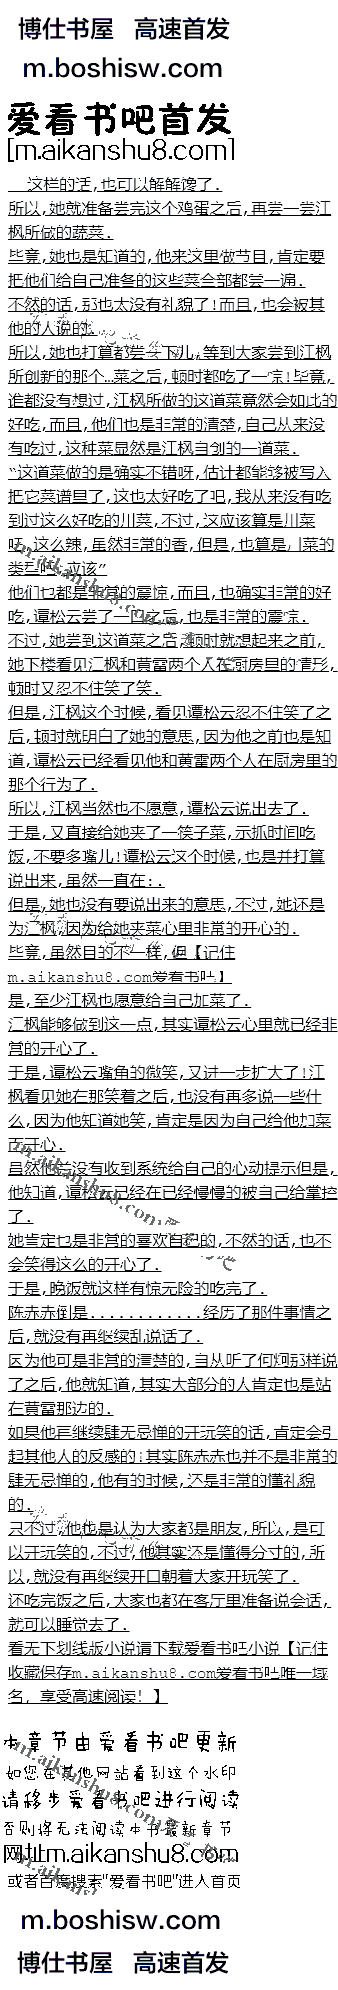 博仕书屋 高速首发
m.boshisw.com
爱看书吧首发
[m.aikanshu8.com]
这样的话,也可以解解馋了.
所以,她就准备尝完这个鸡蛋之后,再尝一尝江
枫所做的蔬菜.
毕竟,她也是知道的,他来这里做节目,肯定要
把他们给自己准备的这些菜全部都尝一遍.
不然的话,那也太没有礼貌了!而且,也会被其
他的人说的.
所以,她也打算都尝一下儿,等到大家尝到江枫
所创新的那个…菜之后,顿时都吃了一惊!毕竟,
谁都没有想过,江枫所做的这道菜竟然会如此的
好吃,而且,他们也是非常的清楚,自己从来没
有吃过,这种菜显然是江枫自创的一道菜.
“这道菜做的是确实不错呀,估计都能够被写入
把它菜谱里了,这也太好吃了吧,我从来没有吃
到过这么好吃的川菜,不过,这应该算是川菜
吧,这么辣,虽然非常的香,但是,也算是川菜的
类型吧,应该”
他们也都是非常的震惊,而且,也确实非常的好
吃,谭松云尝了一口之后,也是非常的震惊.
不过,她尝到这道菜之后,顿时就想起来之前,
她下楼看见江枫和黄雷两个人在厨房里的情形,
顿时又忍不住笑了笑.
但是,江枫这个时候,看见谭松云忍不住笑了之
后,顿时就明白了她的意思,因为他之前也是知
道,谭松云已经看见他和黄雷两个人在厨房里的
那个行为了.
所以,江枫当然也不愿意,谭松云说出去了.
于是,又直接给她夹了一筷子菜,示抓时间吃
饭,不要多嘴儿!谭松云这个时候,也是并打算
说出来,虽然一直在:.
但是,她也没有要说出来的意思,不过,她还是
为江枫,因为给她夹菜心里非常的开心的.
毕竟,虽然目的不一样,但【记住
m.aikanshu8.com爱看书吧】
是,至少江枫也愿意给自己加菜了.
江枫能够做到这一点,其实谭松云心里就已经非
常的开心了.
于是,谭松云嘴角的微笑,又进一步扩大了!江
枫看见她在那笑着之后,也没有再多说一些什
么,因为他知道她笑,肯定是因为自己给他加菜
而开心.
虽然他并没有收到系统给自己的心动提示但是,
他知道,谭松云已经在已经慢慢的被自己给掌控
了.
她肯定也是非常的喜欢自己的,不然的话,也不
会笑得这么的开心了.
于是,晚饭就这样有惊无险的吃完了.
陈赤赤倒是............经历了那件事情之
后,就没有再继续乱说话了.
因为他可是非常的清楚的,当从听了何炯那样说
了之后,他就知道,其实大部分的人肯定也是站
在黄雷那边的.
如果他再继续肆无忌惮的开玩笑的话,肯定会引
起其他人的反感的:其实陈赤赤也并不是非常的
肆无忌惮的,他有的时候,还是非常的懂礼貌
的.
只不过,他也是认为大家都是朋友,所以,是可
以开玩笑的,不过,他其实还是懂得分寸的,所
以,就没有再继续开口朝着大家开玩笑了.
还吃完饭之后,大家也都在客厅里准备说会话,
就可以睡觉去了.
看无下划线版小说请下载爱看书吧小说【记住
收藏保存m.aikanshu8.com爱看书吧唯一域
名，享受高速阅读！】
本章节由爱看书吧更新
如您在其他网站看到这个水印
请移步爱看书吧进行阅读
否则将无法阅读本书最新章节
网址m.aikanshu8.com
或者百度搜索"爱看书吧"进入首页
m.boshisw.com
博仕书屋 高速首发